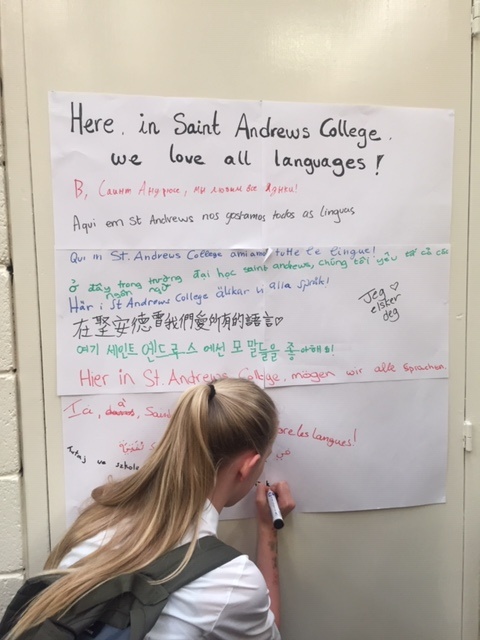 Here, in Saint Andrews College,
we love all languages!
В, Саинт Андрюс, мы любим все языки!
Aqui em St Andrews nos gostamos todos as linguas
Qui in St. Andrews College amiamo tutte le lingue!
ở đây trong trường đại học saint andrews, chúng tôi yêu tất cả các
ngôn ngữ
Här i St Andrews College älskar vi alla språk!
Jeg ♡
elsker
deg
在聖安德魯我們愛所有的語言♡
여기 세인트 앤드루스 에선 모 말들을 좋아해요!
Hier in St. Andrews College, mögen wir alle Sprachen.
Ici, à Saint
les langues!
Tutaj we szkole